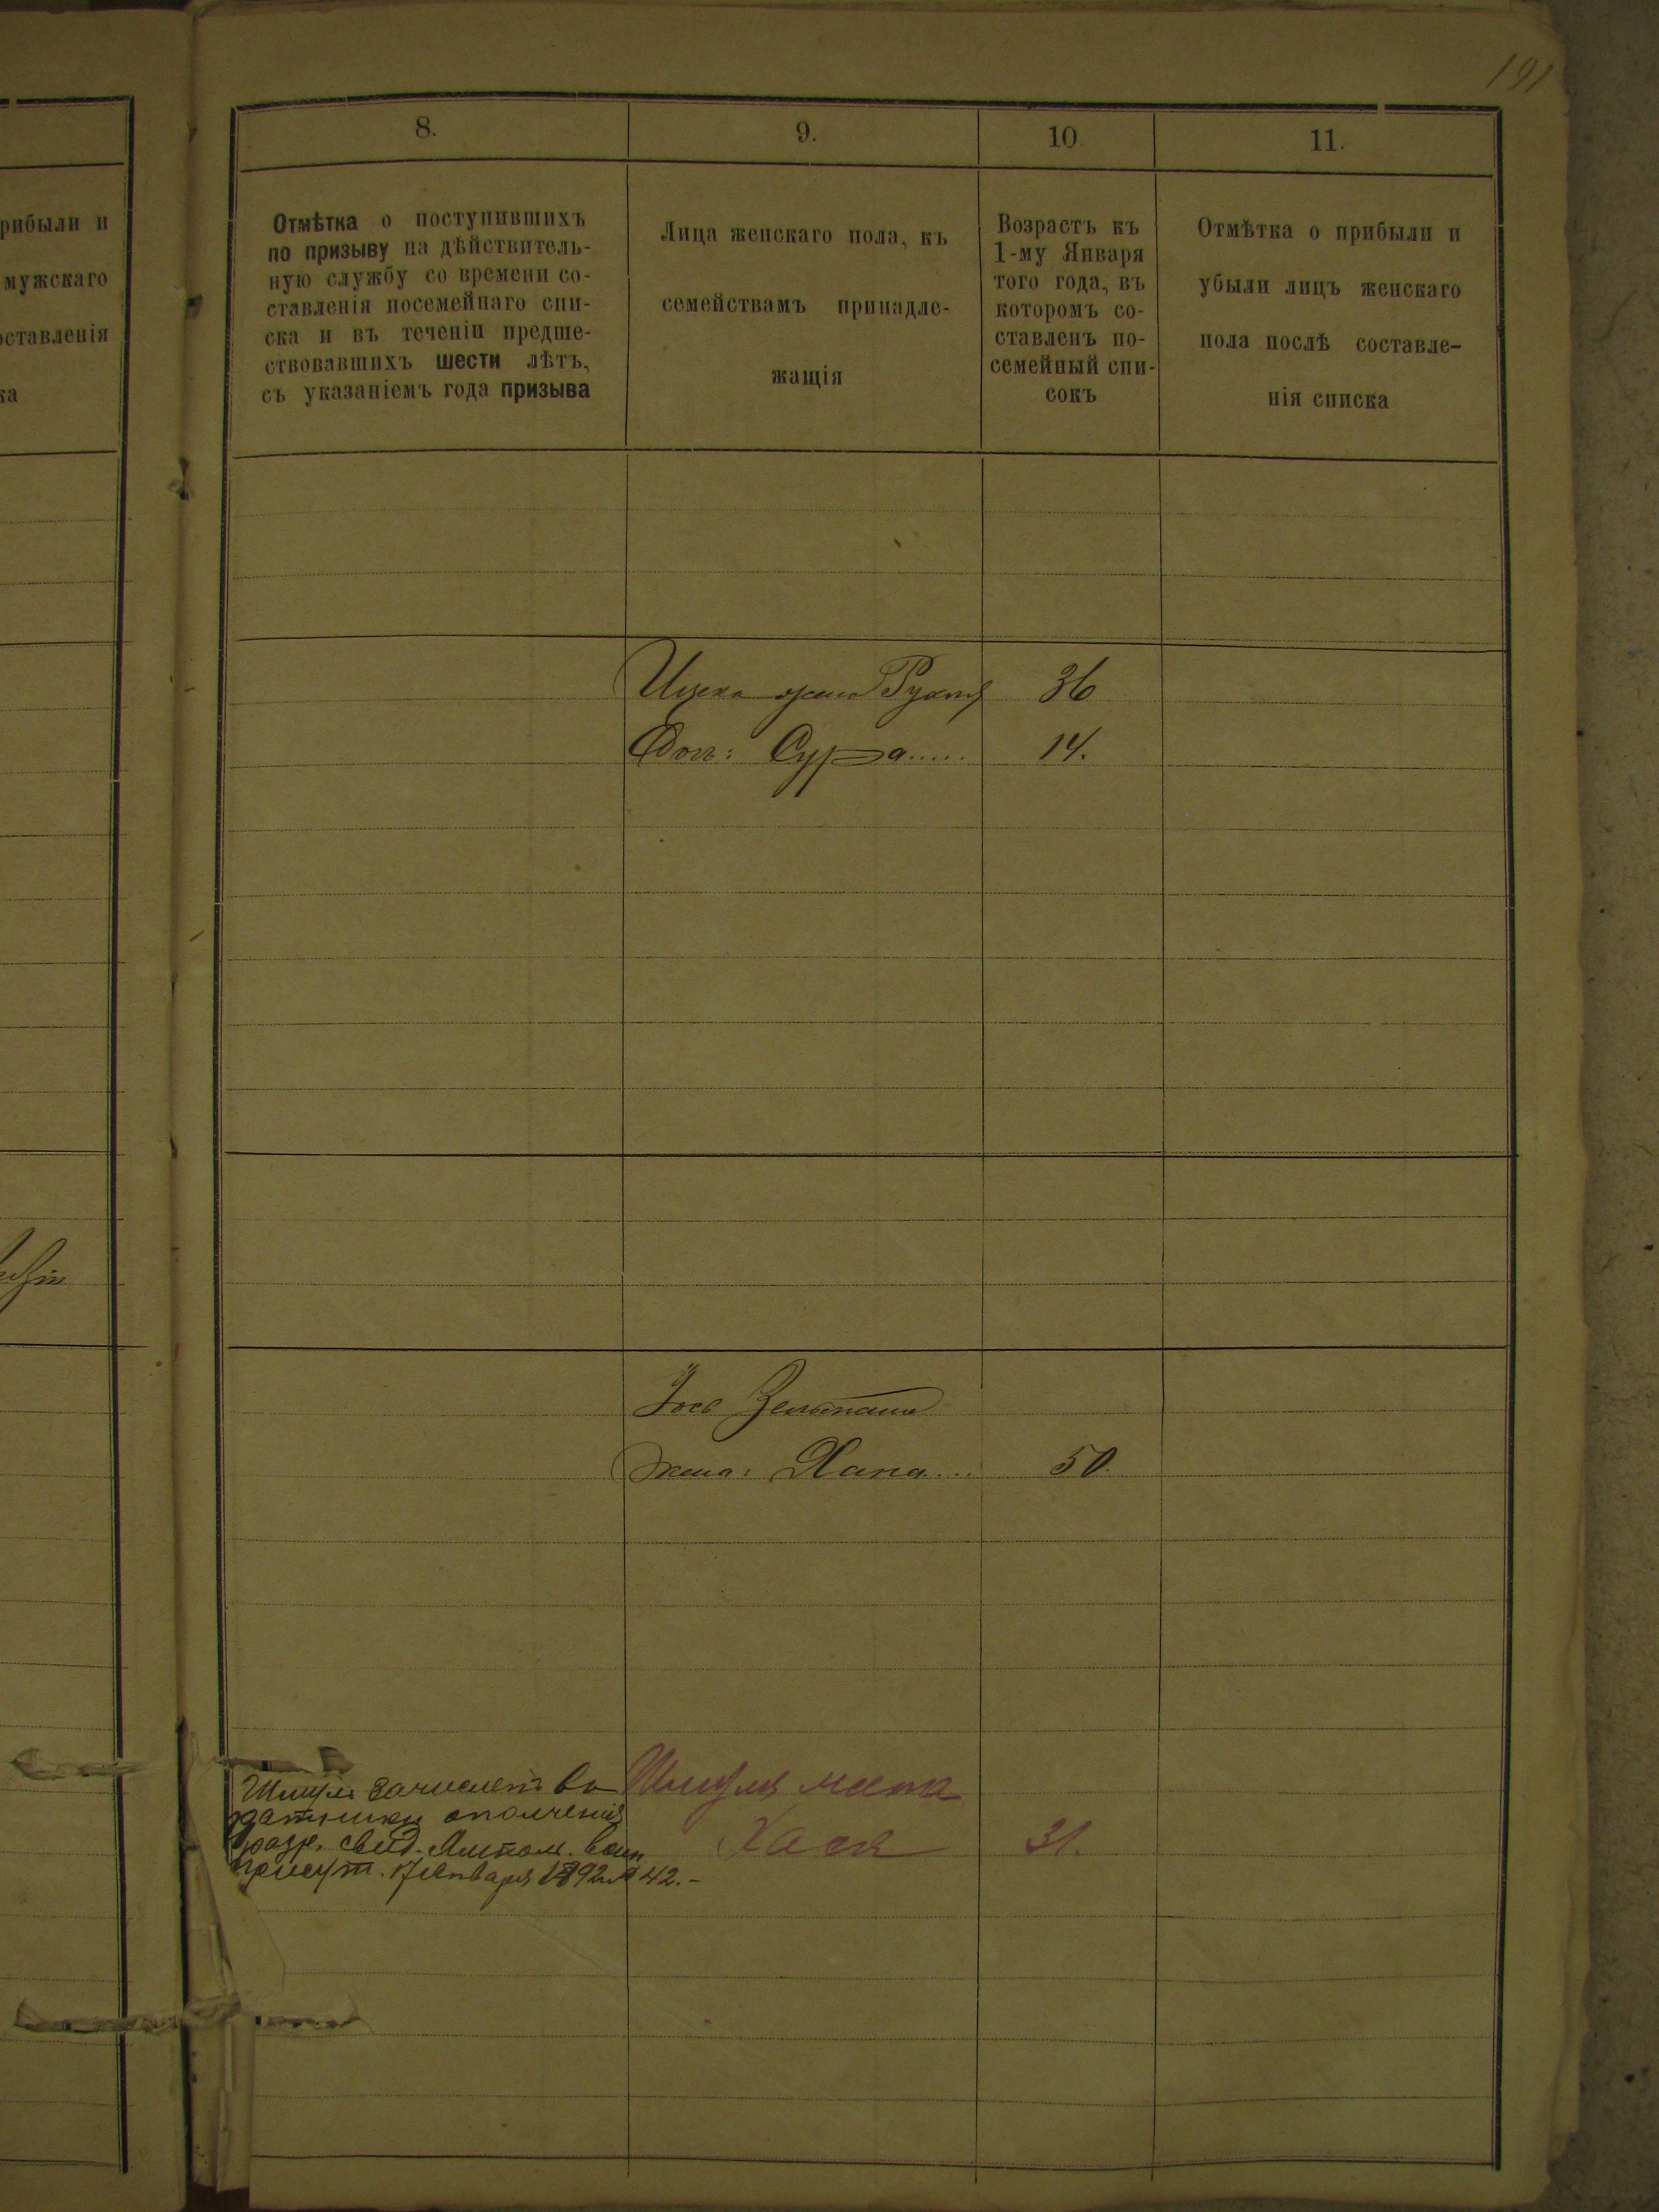 191
8.
9.
10.
11.
Отмѣтка о поступившихъ
по призыву на дѣйствитель-
ную службу со времени со-
ставленія посемейнаго спи-
ска и въ теченіи предше-
ствовавшихъ шести лѣтъ,
съ указаніемъ года призыва
Лица женскаго пола, къ
семействамъ принадле-
жащія
Возрастъ къ
1-му Января
того года, въ
которомъ со-
ставленъ по-
семейный спи-
сокъ
Отмѣтка о прибыли и
убыли лицъ женскаго
пола послѣ составле-
нія списка
рибыли и
мужскаго
оставленія
ка
Ицека жена 36
Доч: Сура..... 14.
Зельманъ
жена: Хана... 50.
Шмуля зачисленъ въ
ратники ополченія
разр. свид. воин
присут. Января 1892 № 42.-
Шмуля мать
Хася 31.